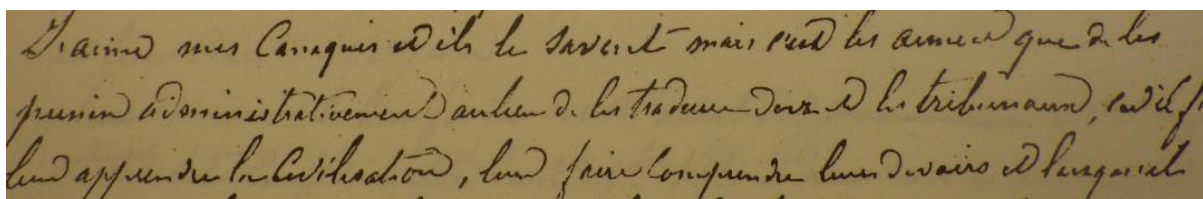 J'aime mes Canaques et ils le savent mais c'est les aimer que de les
punir administrativement au lieu de les traduire devant les tribunaux, car il f
leur apprendre la Civilisation, leur faire comprendre leurs devoirs et